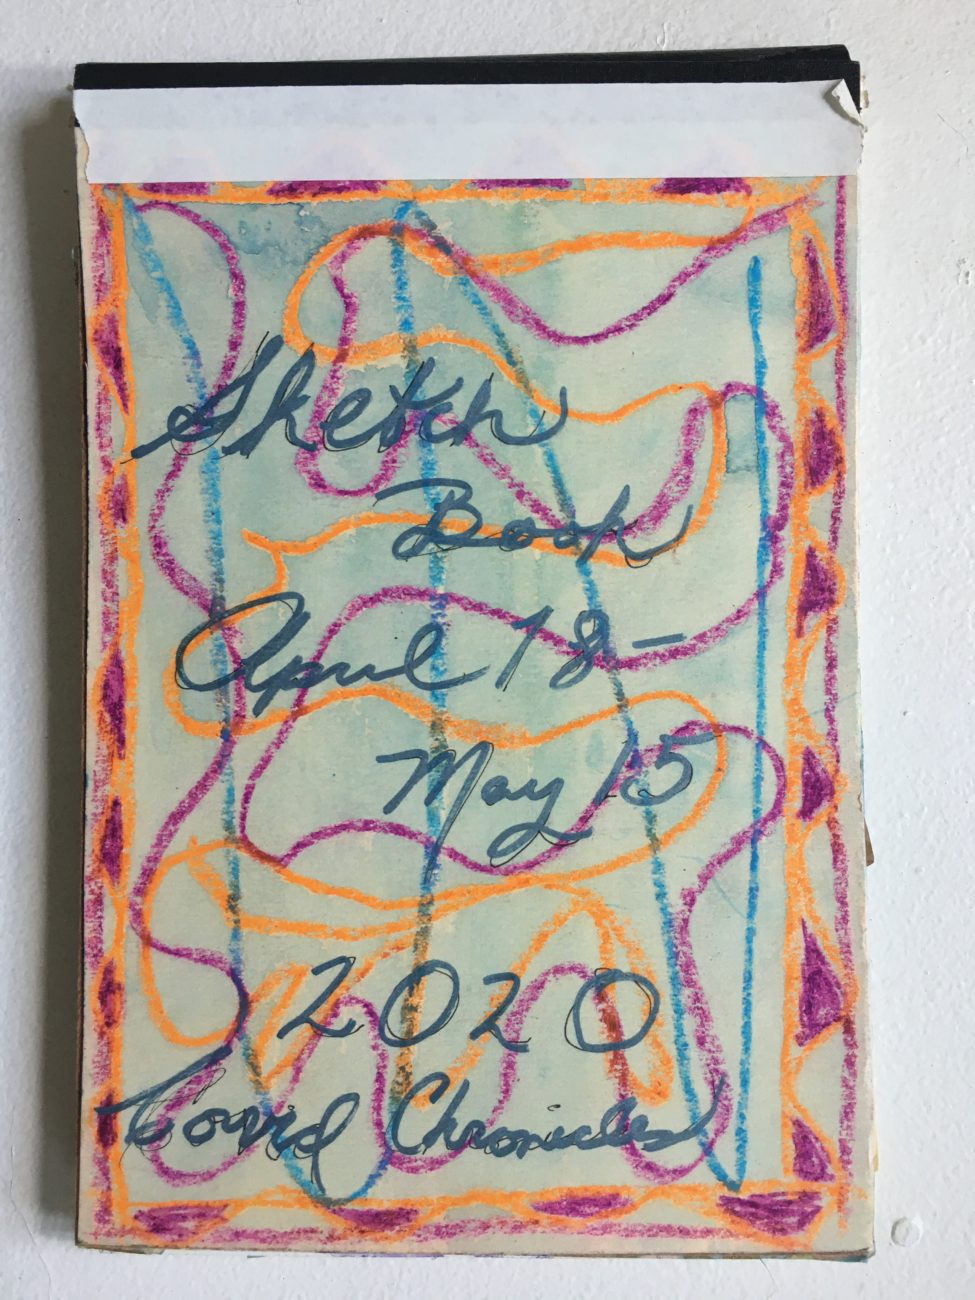 Sketch
Book
April 18-
May 15
2020
Covid Chronicles